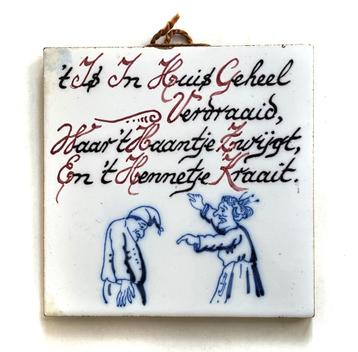 't Is In Huis Geheel
Verdraaid,
Waar 't Haantje Zwijgt,
En 't Hennetje Kraait.